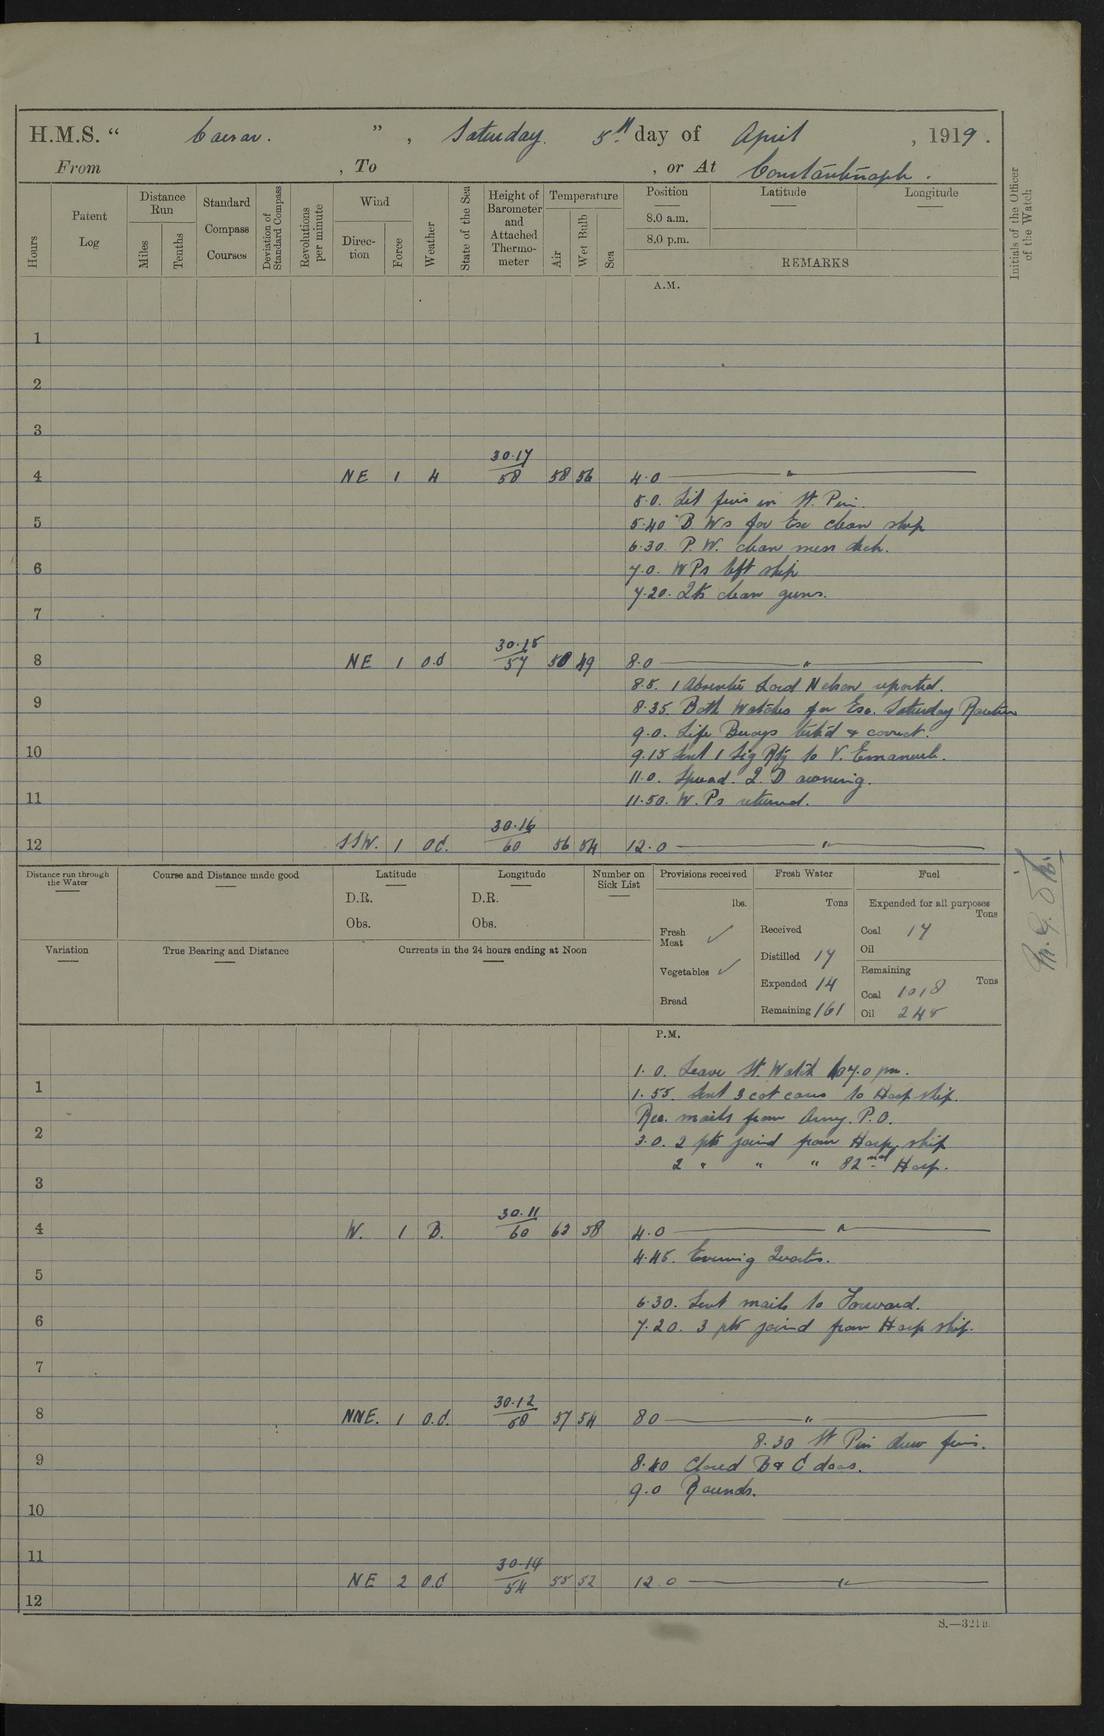 H.M.S. “ Caesar. ” , Saturday. 5th day of April , 1919.
From , To , or At Constantinople.
Hours
Patent Log
Distance Run
Miles
Tenths
Standard Compass Courses
Deviation of Standard Compass
Revolutions per minute
Wind
Direction
Force
Weather
State of the Sea
Height of Barometer and Attached Thermometer
Temperature
Air
Wet Bulb
Sea
Position
Latitude
Longitude
8.0 a.m.
8.0 p.m.
REMARKS
Initials of the Officer of the Watch
A.M.
1
2
3
30.17
4 NE 1 58 58 56 4.0 ——— " ———
5.0. Lit fires in St. Pin.
5 5.40 B Ws for Exe clean ship
6.30. P.W. clean mess deck.
6 7.0. WPs left ship
7.20. Qts clean guns.
7
30.15
8 NE 1 o.d 57 50 49 8.0 ——— " ———
8.5. 1 Absentee Lord Nelson reported.
9 8.35. Both Watches for Exe. Saturday Routine
9.0. Life Buoys tested & correct.
10 9.15 Sent 1 Sig Rtg to V. Emanuele.
11.0. Spread. Q.D awning.
11 11.50. W.Ps returned.
30.16
12 SSW. 1 od. 60 56 54 12.0 ——— " ———
Distance run through the Water
Course and Distance made good
Latitude
Longitude
Number on Sick List
Provisions received
Fresh Water
Fuel
D.R.
D.R.
lbs.
Tons
Expended for all purposes
Tons
Obs.
Obs.
Fresh Meat ✓
Received
Coal 17
Variation
True Bearing and Distance
Currents in the 24 hours ending at Noon
Distilled 17
Oil
Vegetables ✓
Expended 14
Remaining
Tons
Coal 1018
Bread
Remaining 161
Oil 245
P.M.
1.0. Leave St. Watch to 7.0 pm.
1 1.55. Sent 3 cot cases to Hosp ship.
Rec. mails from Army. P.O.
2 3.0. 2 pts joined from Hosp. ship
2 " " " 82nd Hosp.
3
30.11
4 W. 1 B. 60 62 58 4.0 ——— " ———
4.45. Evening Quarters.
5
6.30. Sent mails to Forward.
6 7.20. 3 pts joined from Hosp ship.
7
30.12
8 NNE. 1 o.d. 58 57 54 8 0 ——— " ———
8.30 St Pin drew fires.
9 8.40 Closed B & C doors.
9.0 Rounds.
10
11
30.14
NE 2 o.d 54 55 52 12.0 ——— " ———
12
S.—321B.